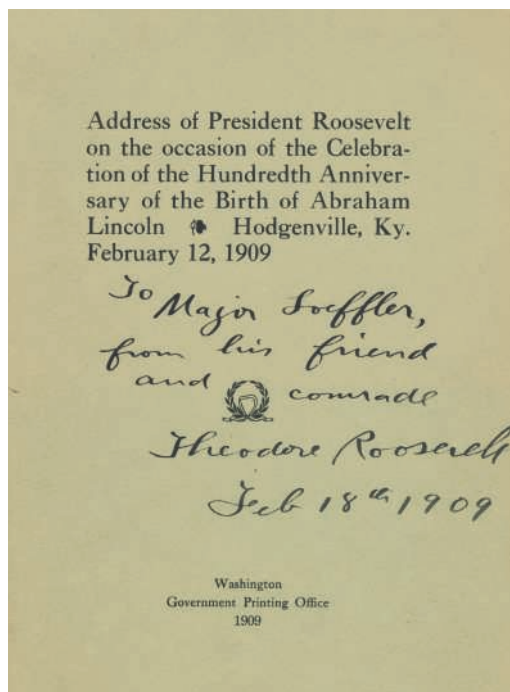 Address of President Roosevelt
on the occasion of the Celebra-
tion of the Hundredth Anniver-
sary of the Birth of Abraham
Lincoln Hodgenville, Ky.
February 12, 1909
To
Major Loeffler,
from his friend
and comrade
Theodore Roosevelt
Feb 18th 1909
Washington
Government Printing Office
1909